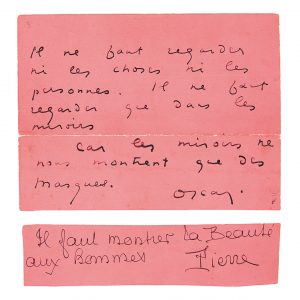 Il ne faut regarder
ni les choses ni les
personnes. Il ne faut
regarder que dans les
miroirs
Car les miroirs ne
nous montrent que des
masques.
Oscar.
Il faut montrer la Beauté
aux hommes
Pierre